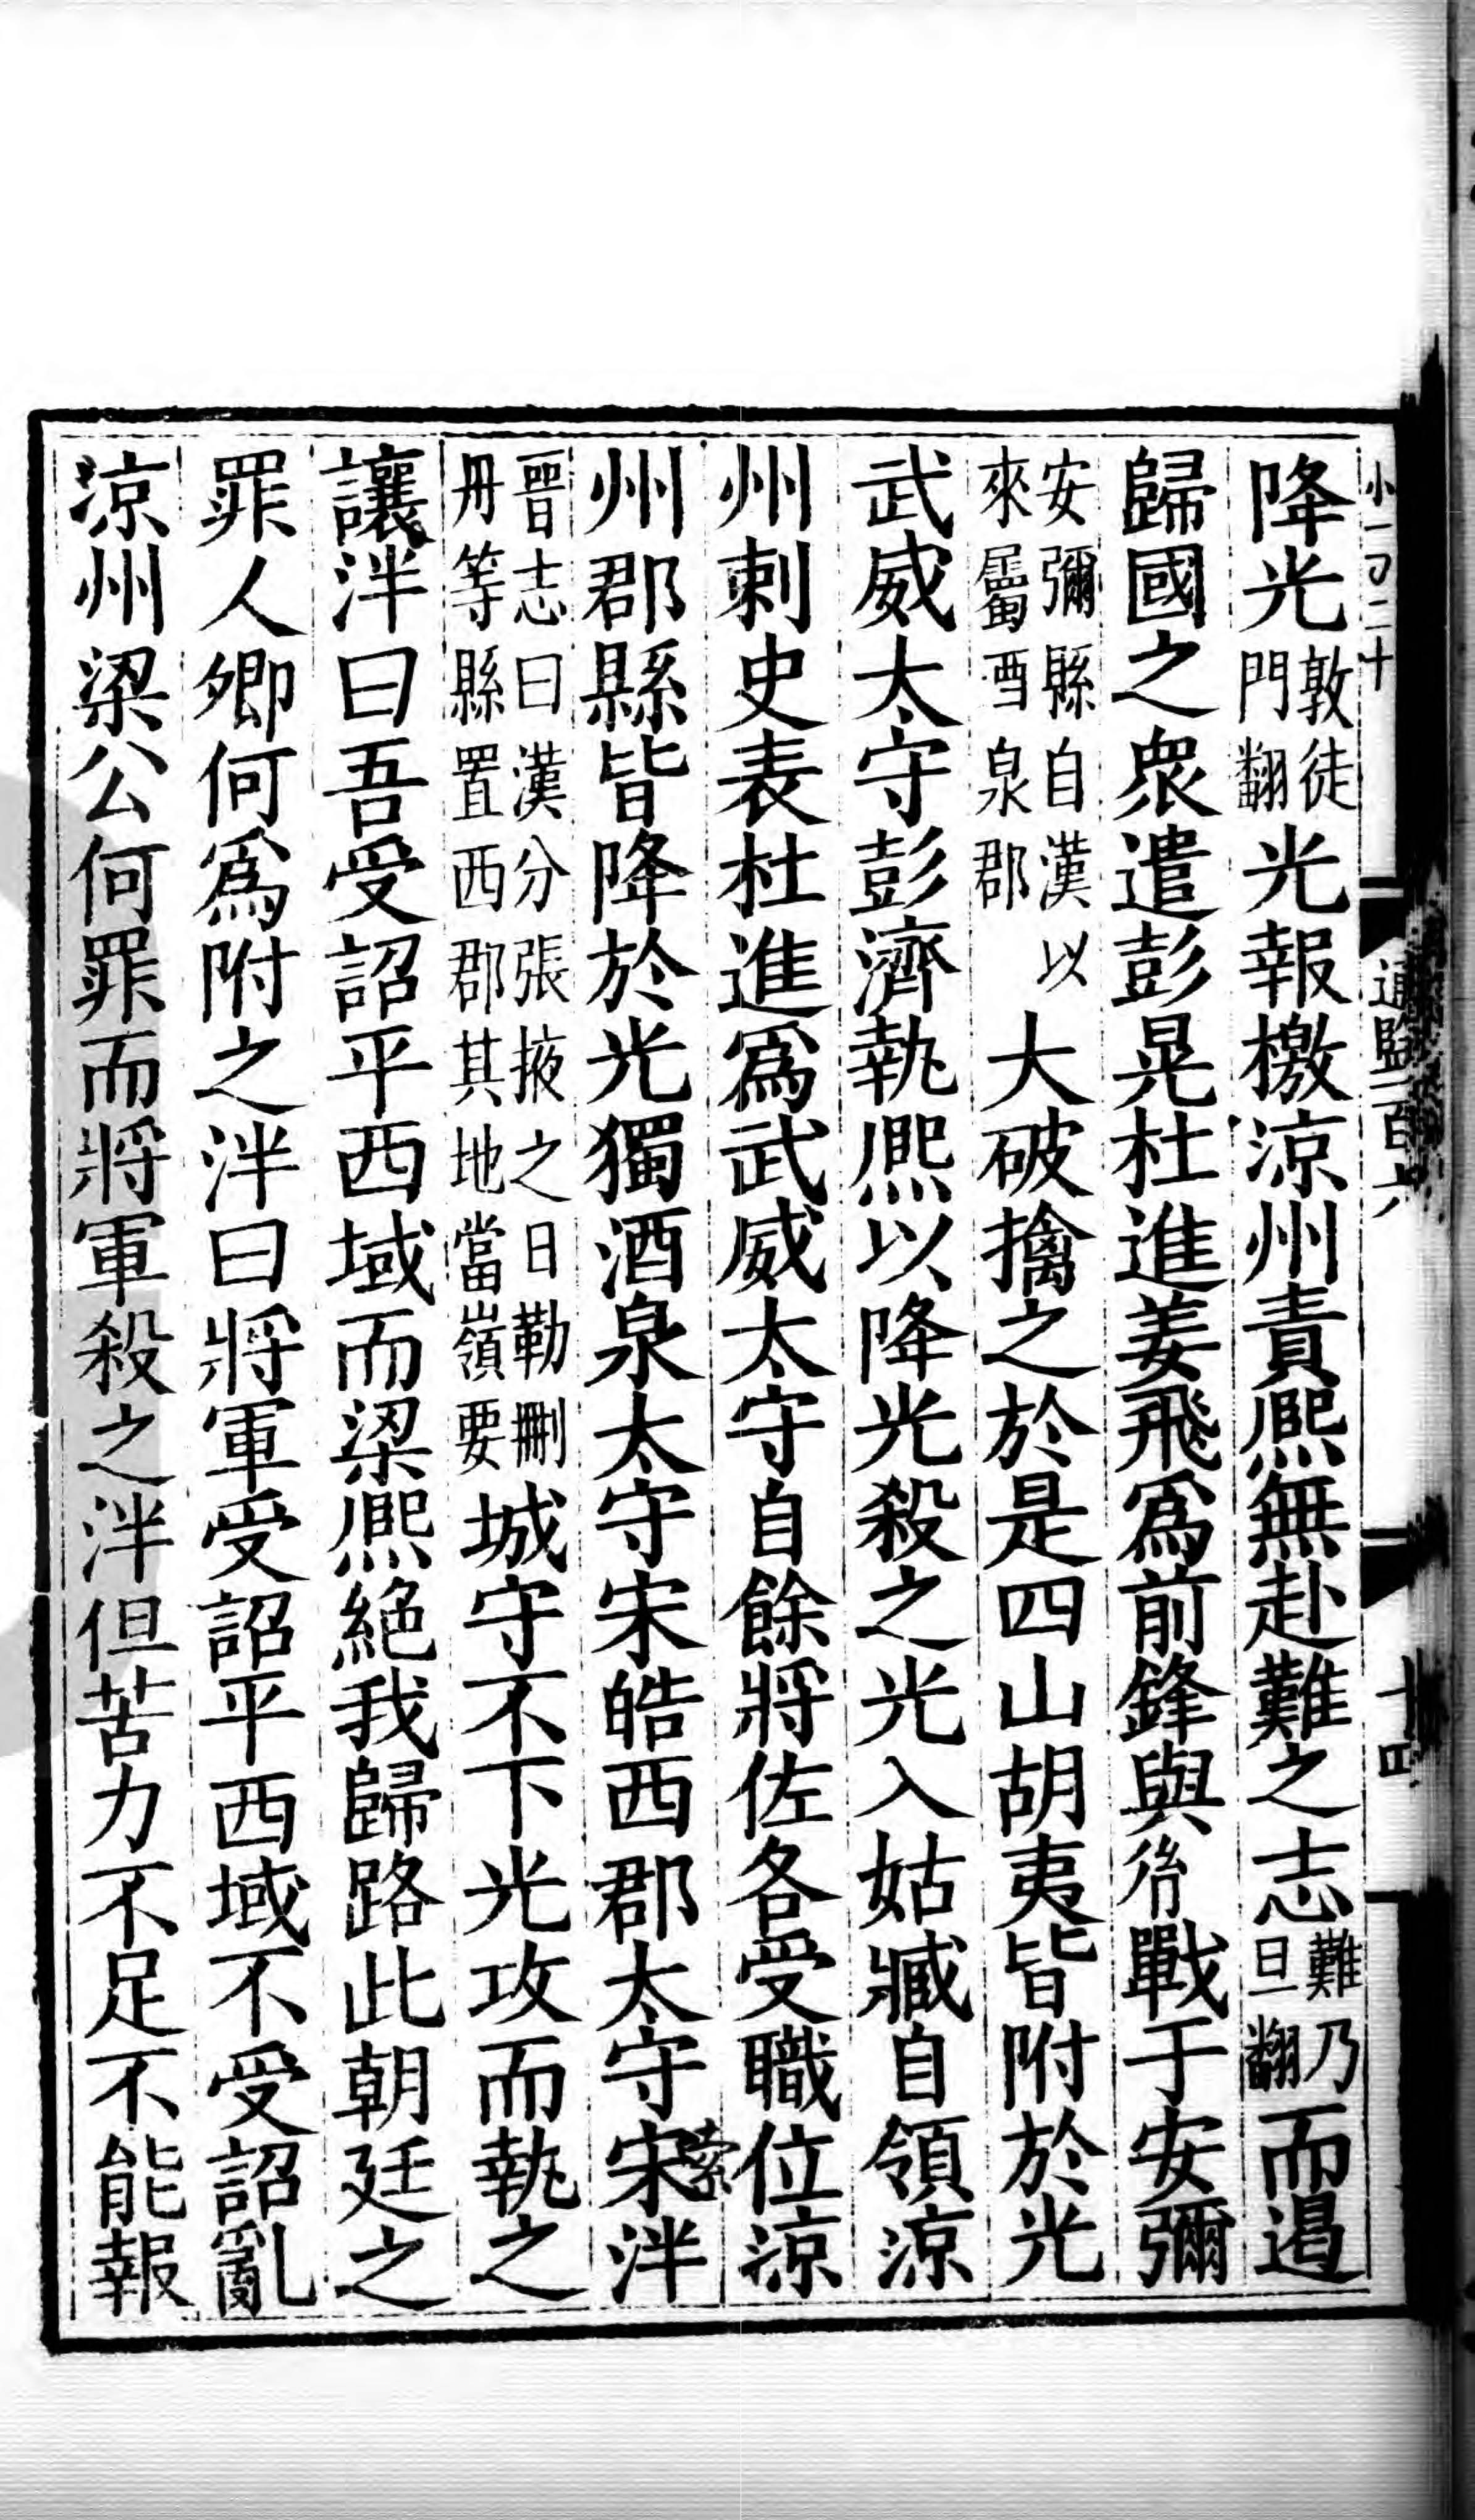 小一百二十
通鑑一百六
十四
降光敦徒門翻光報檄涼州責熈無赴難之志難乃旦翻而遏
歸國之衆遣彭晃杜進姜飛爲前鋒與㣧戰于安彌
安彌縣自漢以來屬酉泉郡大破擒之於是四山胡夷皆附於光
武威太守彭濟執熈以降光殺之光入姑臧自領涼
州刺史表杜進爲武威太守自餘將佐各受職位涼
州郡縣皆降於光獨酒泉太守宋皓西郡太守宋泮索
晉志曰漢分張掖之日勒刪丹等縣置西郡其地當嶺要城守不下光攻而執之
讓泮曰吾受詔平西域而梁熈絶我歸路此朝廷之
罪人卿何爲附之泮曰將軍受詔平西域不受詔亂
涼州梁公何罪而將軍殺之泮但苦力不足不能報